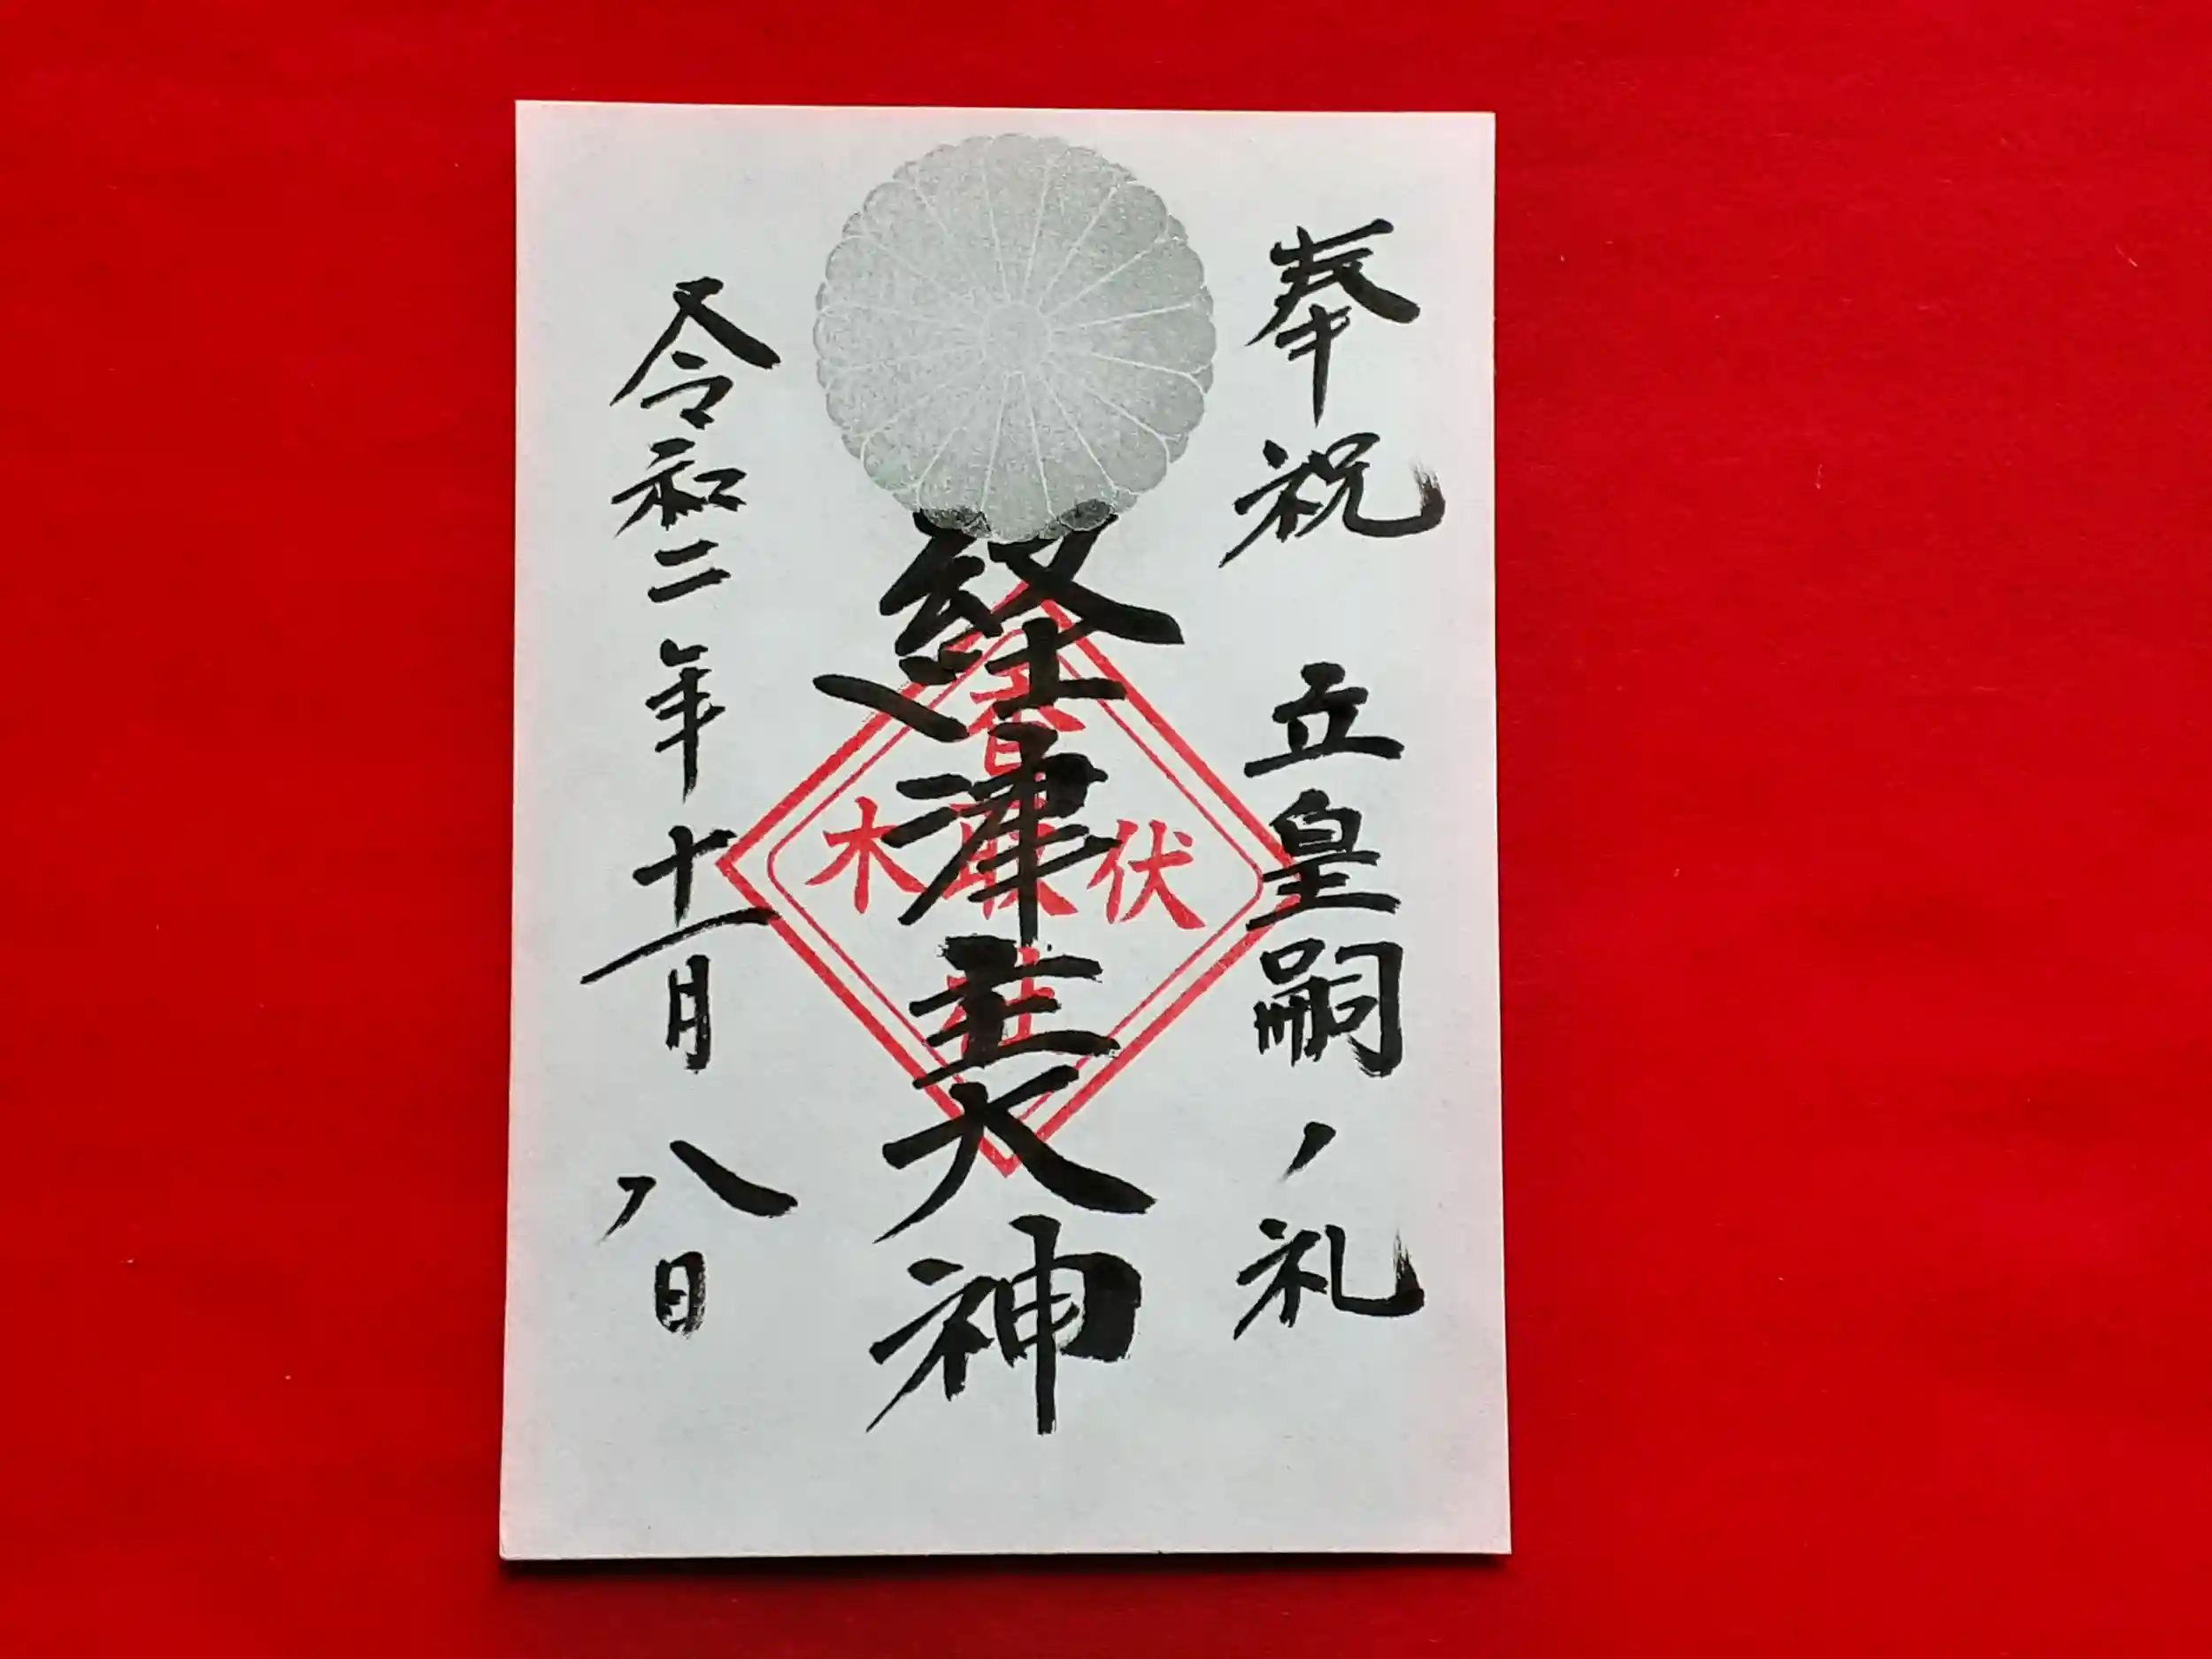 奉祝 立皇嗣ノ礼
経津主大神
伏木
令和二年十一月八日